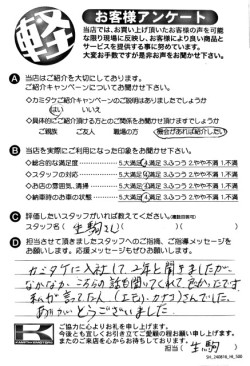 軽
お客様アンケート
当店では、お買い上げ頂いたお客様の声を可能
な限り現場に反映し、お客様により良い商品と
サービスを提供する事に努めています。
大変お手数ですが是非お声をお聞かせ下さい。
A 当店はご紹介を大切にしております。
ご紹介キャンペーンについてお聞かせ下さい。
◇カミタケご紹介キャンペーンのご説明はありましたでしょうか
はい いいえ
◇具体的にご紹介頂ける方とのご関係をお聞かせ頂けますでしょうか
ご親族 ご友人 職場の方 機会があれば紹介したい
B 当店を実際にご利用になった印象をお聞かせ下さい。
◇総合的な満足度 5.大満足 4.満足 3.ふつう 2.やや不満 1.不満
◇スタッフの対応 5.大満足 4.満足 3.ふつう 2.やや不満 1.不満
◇お店の雰囲気、清掃 5.大満足 4.満足 3.ふつう 2.やや不満 1.不満
◇納車時のお車の状態 5.大満足 4.満足 3.ふつう 2.やや不満 1.不満
C 評価したいスタッフがいれば教えてください。(複数回答可)
スタッフ名( 生駒さん )( )( )
D 担当させて頂きましたスタッフへのご指摘、ご指導メッセージを
お願いします。応援メッセージもぜひお願いします。
カミタケに入社して2年と聞きましたが、
なかなか、こちらの話を聞いてくれて良かったです。
さんでした。
ありがとうございました
ご協力に心よりお礼を申し上げます。
今後とも宜しくお引き立てご愛顧の程お願い申し上げます。
またのご来店を心からお待ちしております。
担当( 生駒 )